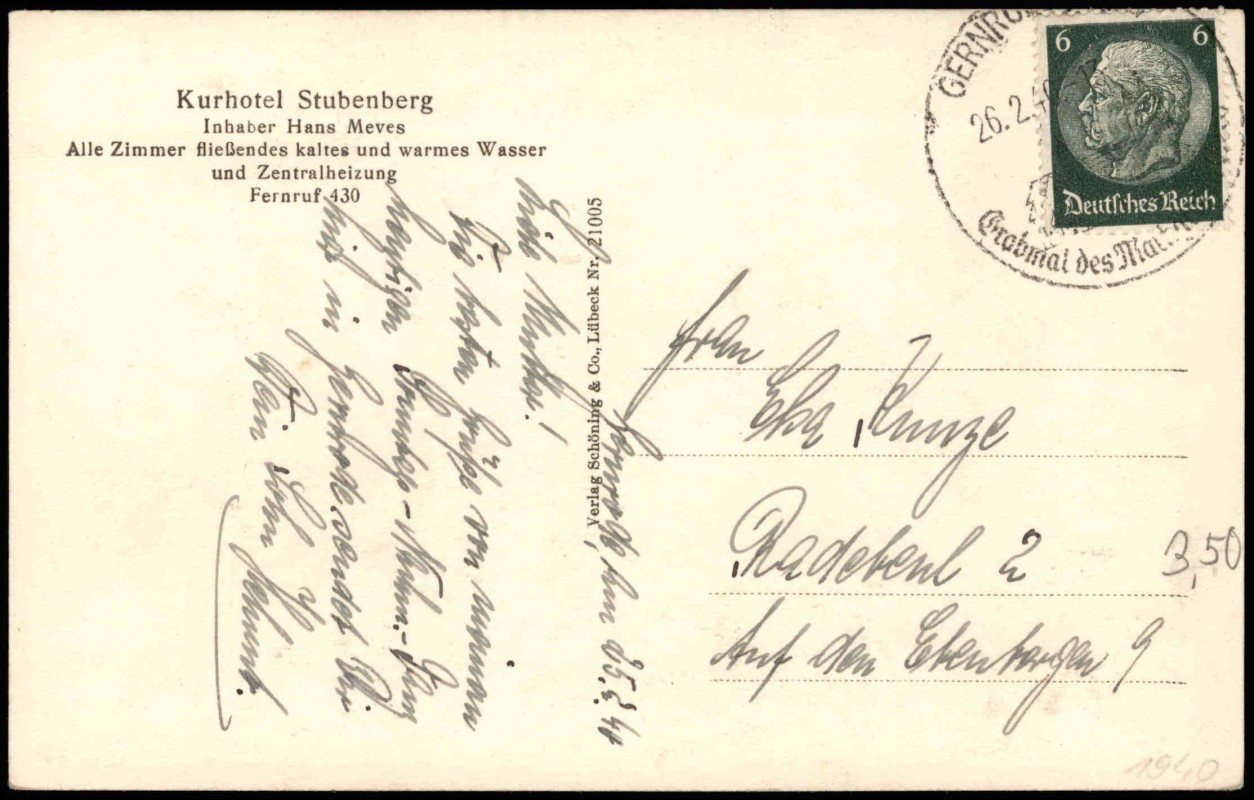 Kurhotel Stubenberg
Inhaber Hans Meves
Alle Zimmer fließendes kaltes und warmes Wasser
und Zentralheizung
Fernruf 430
GERNRO
26.2.40
Grabmal des Ma
6 6
Deutsches Reich
Verlag Schöning & Co., Lübeck Nr. 21005
den 25.2.40
Liebe Mutter!
Die besten Grüße von meinem
heutigen
in Gernrode sendet Dir
Dein Sohn Helmut.
Frau
Kunze
Radebeul 2
Auf den Ebenbergen 9
3,50
1940